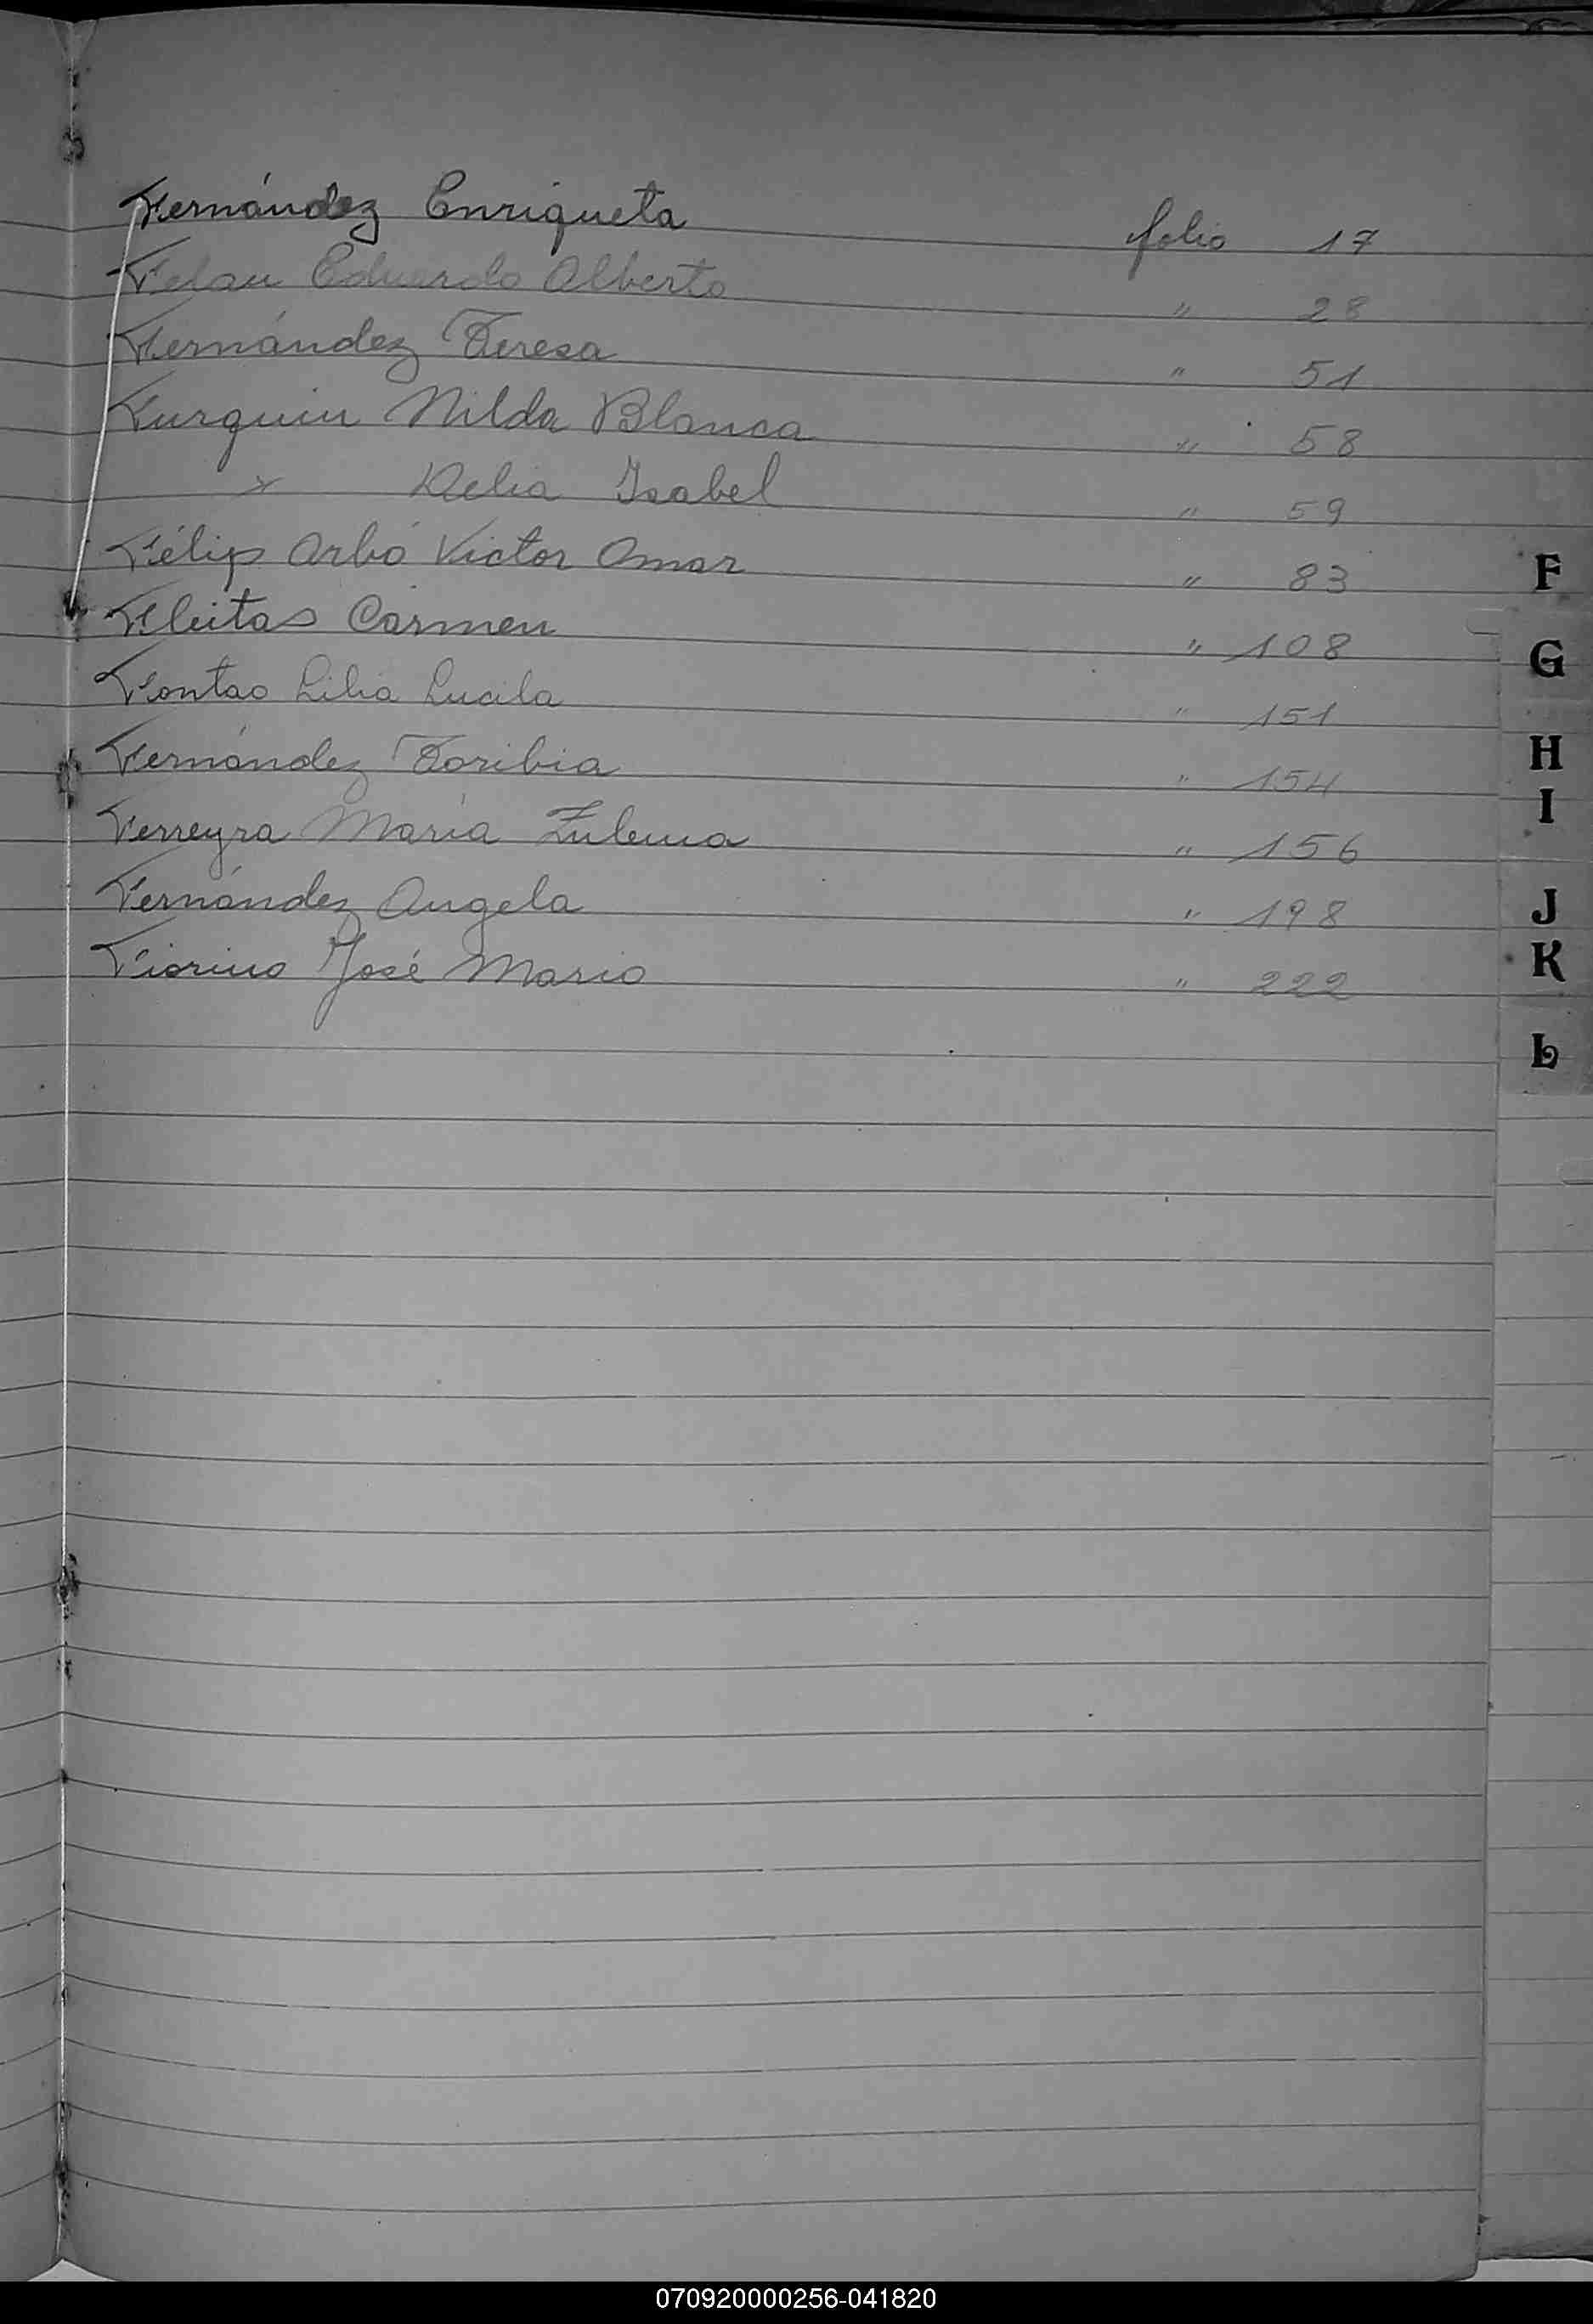 Fernández Enriqueta folio 17
Felau Eduardo Alberto " 28
Fernández Teresa " 51
Furquin Nilda Blanca " 58
" Delia Isabel " 59
Félip Arbó Victor Omar " 83
Fleitas Carmen " 108
Fontao Lilia Lucila " 151
Fernández Toribia " 154
Ferreyra María Zulema " 156
Fernández Angela " 198
Fiorino José Mario " 222
F
G
H
I
J
K
L
070920000256-041820